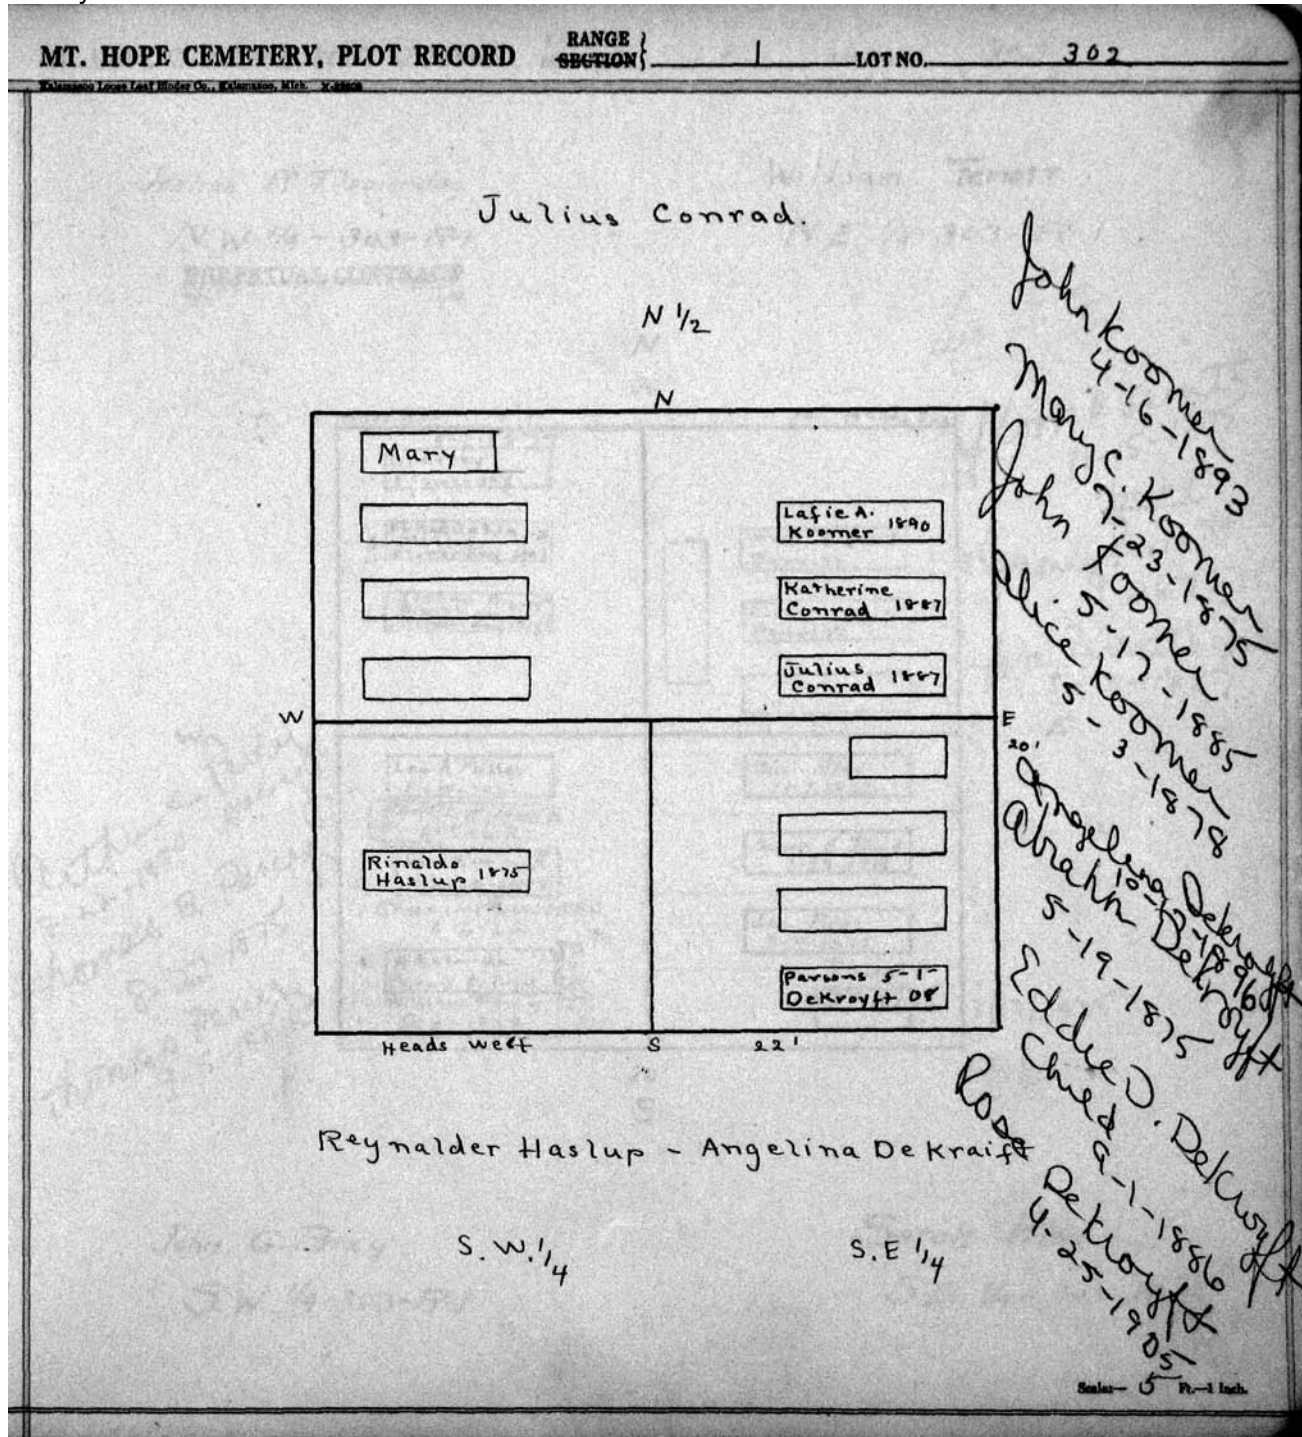 MT. HOPE CEMETERY, PLOT RECORD RANGE SECTION 1 LOT NO. 302
Kalamazoo Loose Leaf Binder Co., Kalamazoo, Mich.
Julius Conrad.
N 1/2
N
Mary
Lafie A. Koomer 1890
Katherine Conrad 1887
Julius Conrad 1887
W
E
20'
Rinaldo Haslup 1875
Parsons 5-1-
DeKroyft 08
Heads West S 22'
Reynalder Haslup - Angelina DeKraift
S.W. 1/4 S.E 1/4
John Koomer
4-16-1893
Mary C. Koomer
7-23-1875
John Koomer
5-17-1885
Alice Koomer
5-3-1878
Angelina Dekroyft
1896
Abrahm DeKroyft
5-19-1875
Eddie D. DeKroyft
Child
9-1-1886
Rose DeKroyft
4-25-1905
Scales— 5 Ft.—1 Inch.